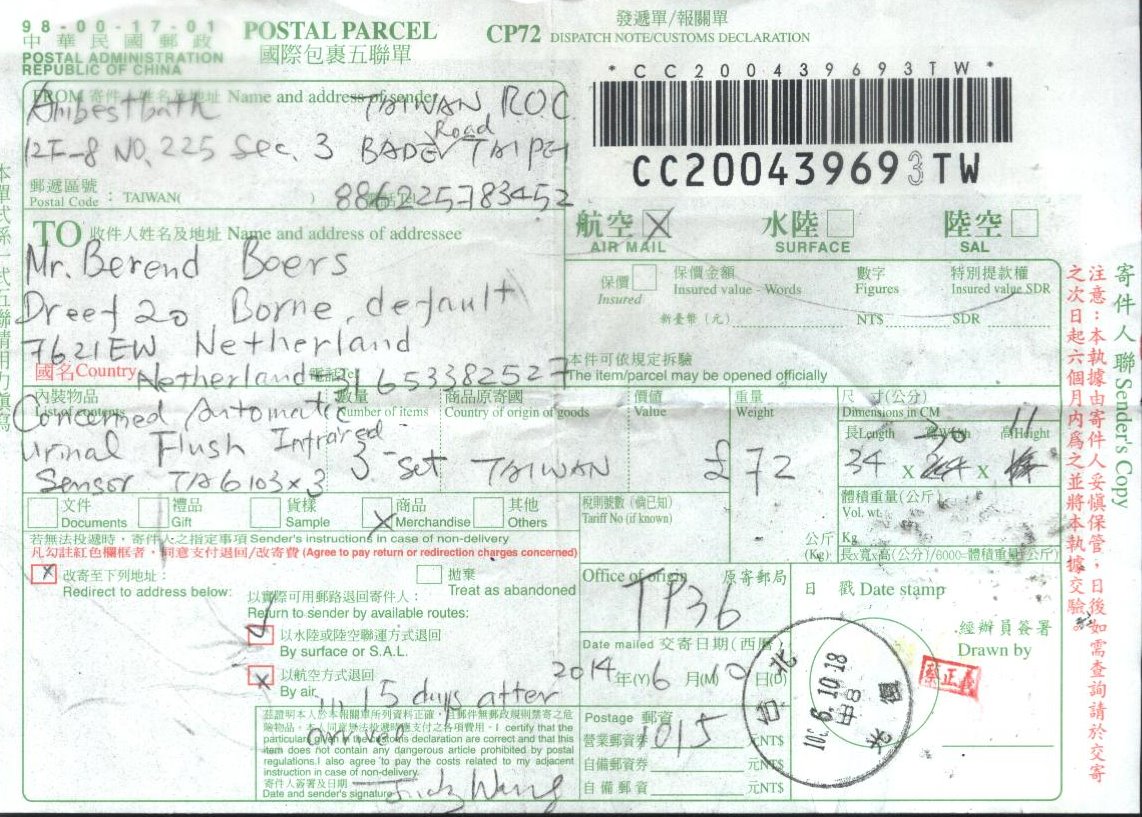 98-00-17-01
中華民國郵政
POSTAL ADMINISTRATION
REPUBLIC OF CHINA
POSTAL PARCEL
國際包裹五聯單
CP72
發遞單/報關單
DISPATCH NOTE/CUSTOMS DECLARATION
*CC200439693TW*
CC200439693TW
FROM 寄件人姓名及地址 Name and address of sender
Ambestbath TAIWAN ROC
12F-8 NO, 225 Sec. 3 BADE Road TAIPEI
郵遞區號
Postal Code : TAIWAN( )
886225783452
航空 X
AIR MAIL
水陸
SURFACE
陸空
SAL
TO 收件人姓名及地址 Name and address of addressee
Mr. Berend Boers
Dreef 20 Borne, default
7621EW Netherland
國名Country
Netherland 31653382527
保價
Insured
保價金額
Insured value - Words
數字
Figures
特別提款權
Insured value SDR
新臺幣（元）
NT$
SDR
本件可依規定拆驗
The item/parcel may be opened officially
內裝物品
List of contents
數量
Number of items
商品原寄國
Country of origin of goods
價值
Value
重量
Weight
尺 寸(公分)
Dimensions in CM
長Length 寬Width 高Height
Concerned Automatic
Urinal Flush Infrared
Sensor TA6103x3
3 - set
TAIWAN
£72
34 x 30 x 11
文件
Documents
禮品
Gift
貨樣
Sample
X 商品
Merchandise
其他
Others
稅則號數（倘已知）
Tariff No (if known)
公斤
(Kg)
體積重量(公斤)
Vol. wt.
Kg
長x寬x高(公分)/6000=體積重量(公斤)
若無法投遞時，寄件人之指定事項 Sender's instructions in case of non-delivery
凡勾註紅色欄框者，同意支付退回/改寄費 (Agree to pay return or redirection charges concerned)
x 改寄至下列地址：
Redirect to address below:
拋棄
Treat as abandoned
以實際可用郵路退回寄件人：
Return to sender by available routes:
以水陸或陸空聯運方式退回
By surface or S.A.L.
以航空方式退回
By air
in 15 days after
arrived
茲證明本人於本報關單所列資料正確，且郵件無郵政規則禁寄之危
險物品，本人同意無法投遞時應付之各項費用。I certify that the
particulars given in the customs declaration are correct and that this
item does not contain any dangerous article prohibited by postal
regulations.I also agree to pay the costs related to my adjacent
instruction in case of non-delivery.
寄件人簽署及日期
Date and sender's signature
Wang
Office of origin 原寄郵局
TP36
Date mailed 交寄日期(西曆)
2014 年(Y) 6 月(M) 10 日(D)
Postage 郵資
營業郵資券 1015 元NT$
自備郵資券 元NT$
自備郵資 元NT$
日 戳 Date stamp
台北
6.10.18
經辦員簽署
Drawn by
蔡正義
寄件人聯 Sender's Copy
注意：本執據由寄件人妥慎保管，日後如需查詢請於交寄
之次日起六個月內為之並將本執據交驗。
本單式係一式五聯請用力填寫